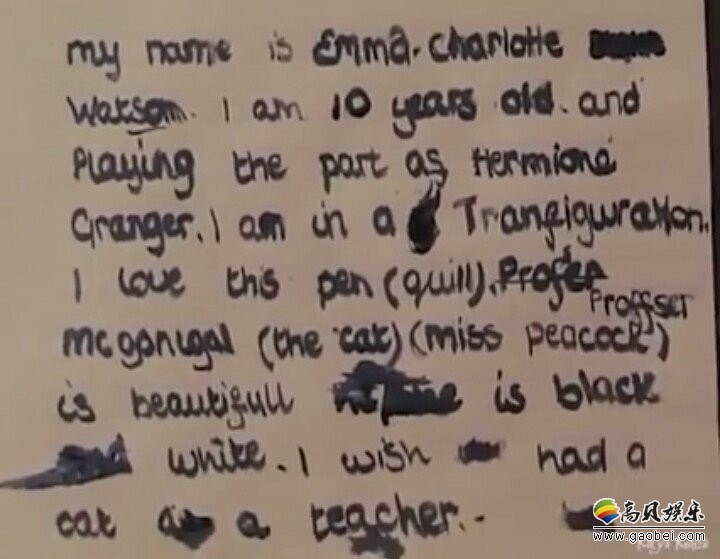 my name is Emma. Charlotte
Watson. I am 10 years old. and
Playing the part as Hermione
Granger. I am in a Tranfiguration.
I love this pen (quill). Profer
Proffser
mcgonigal (the cat) (miss peacock)
is beautifull is black
white. I wish had a
cat as a teacher.
高贝娱乐
www.gaobei.com